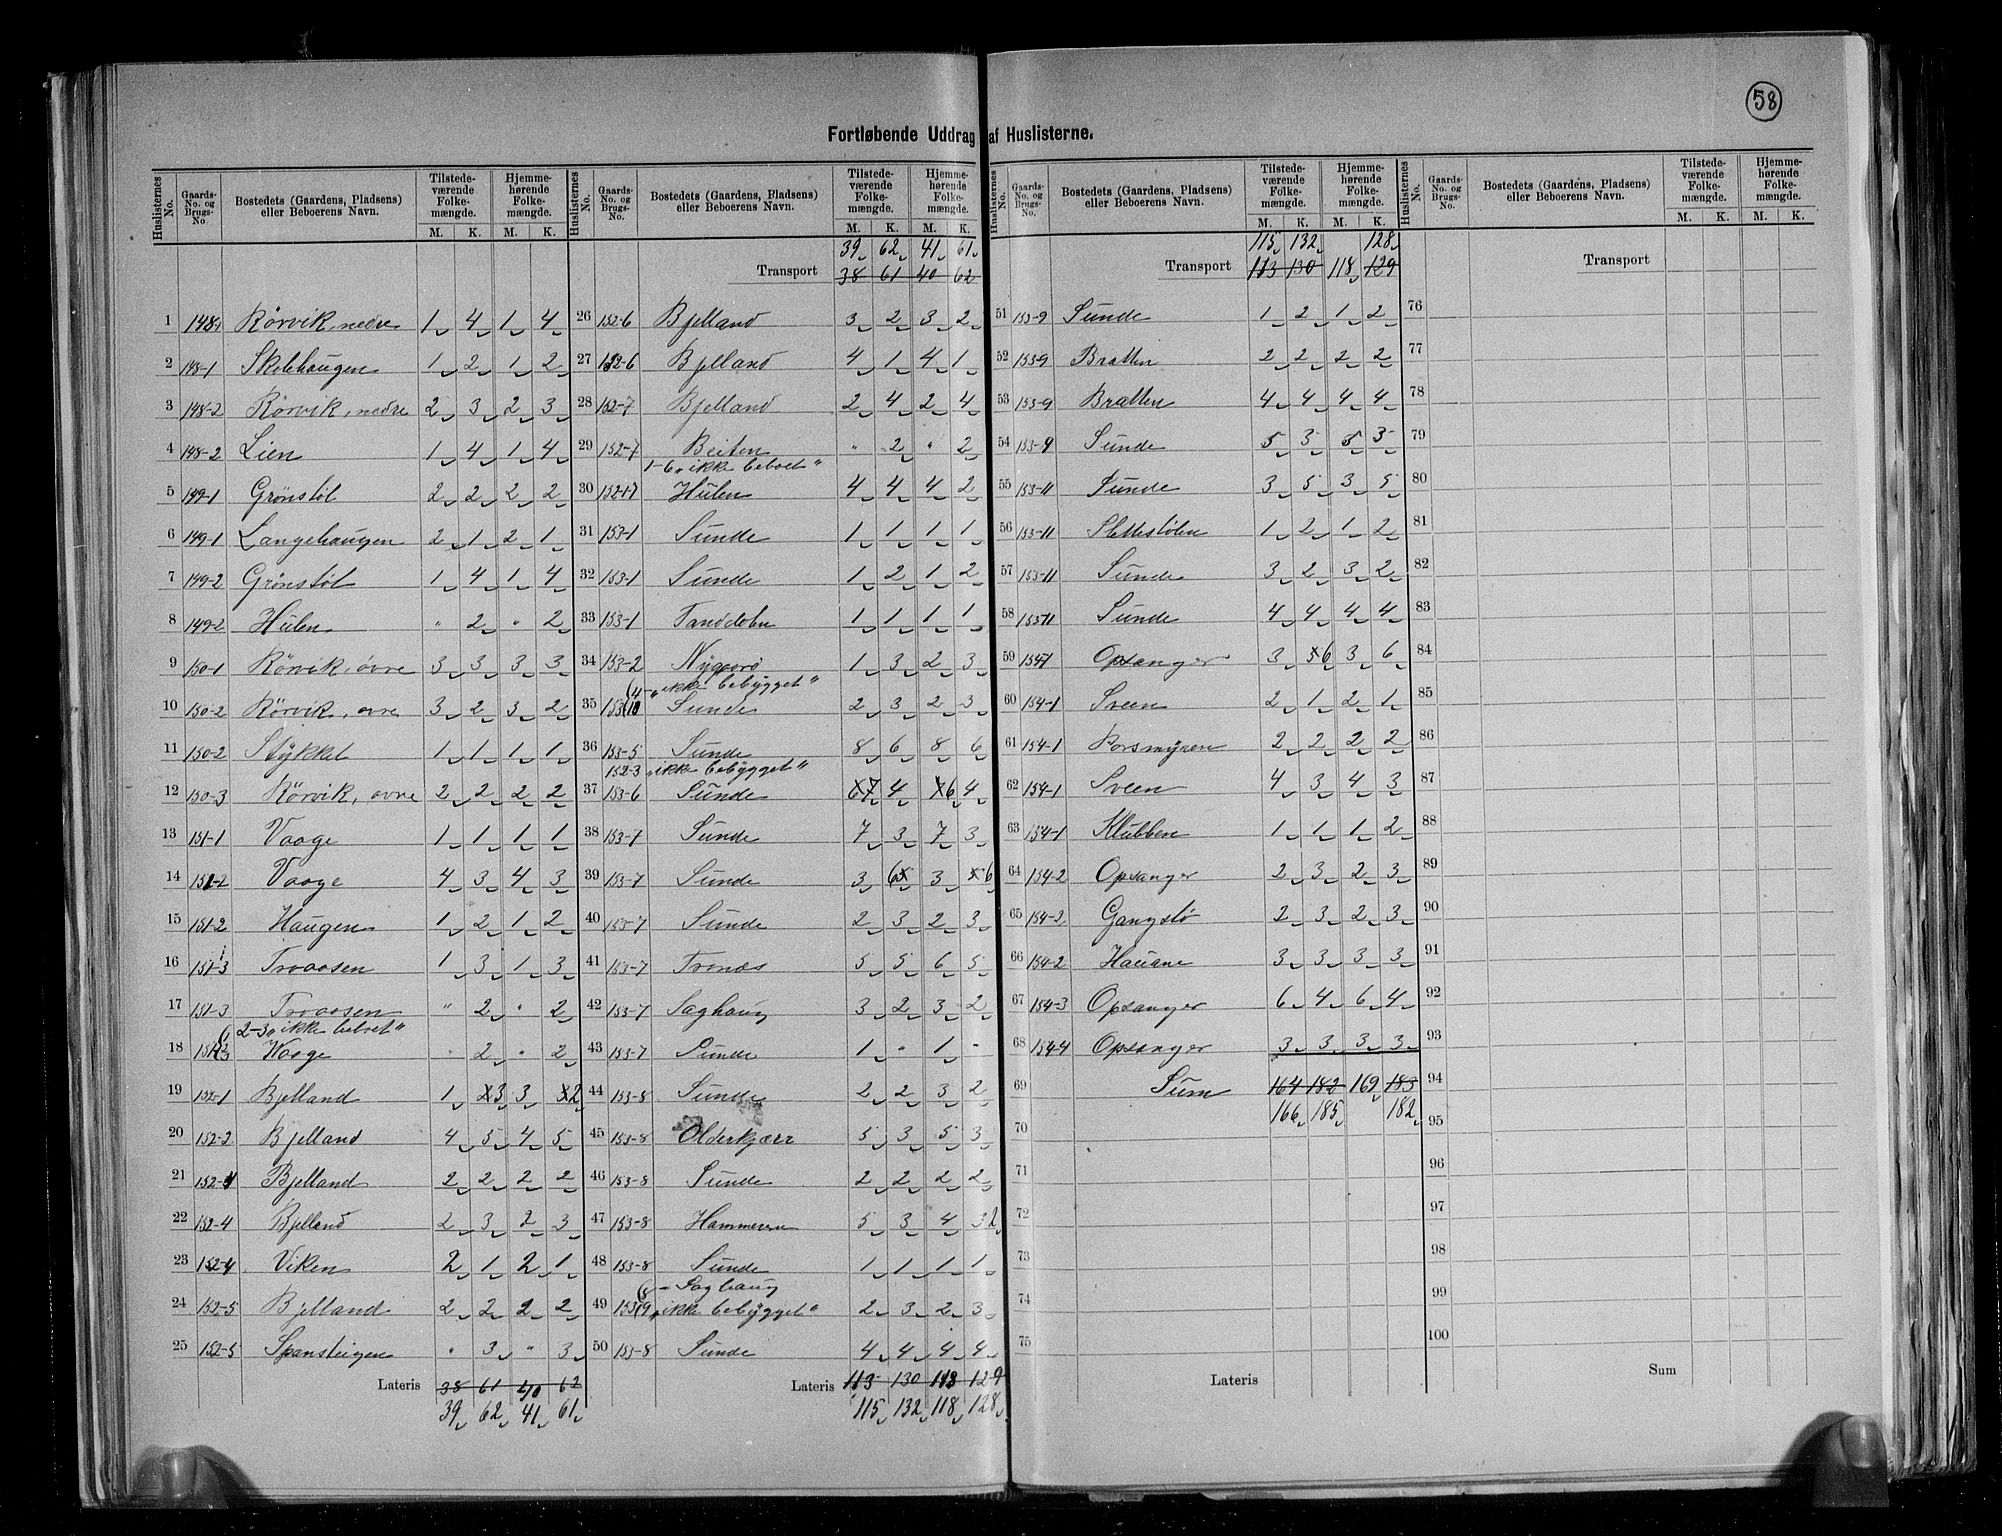 58
Fortløbende Uddrag af Huslisterne.
Huslisternes No. Gaards-No. og Brugs-No. Bostedets (Gaardens, Pladsens) eller Beboerens Navn. Tilstedeværende Folkemængde. M. K. Hjemmehørende Folkemængde. M. K.
1 148-1 Rörvik, nedre 1 4 1 4
2 148-1 Skelehaugen 1 2 1 2
3 148-2 Rörvik, nedre 2 3 2 3
4 148-2 Lien 1 4 1 4
5 149-1 Grönstöl 2 2 2 2
6 149-1 Langehaugen 2 1 2 1
7 149-2 Grönstöl 1 4 1 4
8 149-2 Hülen " 2 " 2
9 150-1 Rörvik, övre 3 3 3 3
10 150-2 Rörvik, övre 3 2 3 2
11 150-2 Stykket 1 1 1 1
12 150-3 Rörvik, övre 2 2 2 2
13 151-1 Vaage 1 1 1 1
14 151-2 Vaage 4 3 4 3
15 151-2 Haugen 1 2 1 2
16 151-3 Tvaasen 1 3 1 3
17 151-3 Tvaasen " 2 " 2
2-3 "ikke beboet"
18 Vaage " 2 " 2
19 152-1 Bjelland 1 3 3 2
20 152-2 Bjelland 4 5 4 5
21 152-4 Bjelland 2 2 2 2
22 152-4 Bjelland 2 3 2 3
23 152-4 Viken 2 1 2 1
24 152-5 Bjelland 2 2 2 2
25 152-5 Spansteigen " 3 " 3
Lateris 38 61 40 62
39 62 41 61
Huslisternes No. Gaards-No. og Brugs-No. Bostedets (Gaardens, Pladsens) eller Beboerens Navn. Tilstedeværende Folkemængde. M. K. Hjemmehørende Folkemængde. M. K.
39 62 41 61
Transport 38 61 40 62
26 152-6 Bjelland 3 2 3 2
27 152-6 Bjelland 4 1 4 1
28 152-7 Bjelland 2 4 2 4
29 152-7 Beiten " 2 " 2
1-6 "ikke beboet"
30 152-17 Hülen 4 4 4 2
31 153-1 Sunde 1 1 1 1
32 153-1 Sunde 1 2 1 2
33 153-1 1 1 1 1
34 153-2 1 3 2 3
4 - "ikke bebygget"
35 Sunde 2 3 2 3
36 153-5 Sunde 8 6 8 6
152-3 "ikke bebygget"
37 153-6 Sunde 7 4 6 4
38 153-7 Sunde 7 3 7 3
39 153-7 Sunde 3 6 3 6
40 153-7 Sunde 2 3 2 3
41 153-7 Tronæs 5 5 6 5
42 153-7 Saghaug 3 2 3 2
43 153-7 Sunde 1 " 1 "
44 153-8 Sunde 2 2 3 2
45 153-8 Olderkjær 5 3 5 3
46 153-8 Sunde 2 2 2 2
47 153-8 Hammeren 5 3 4 2
48 153-8 Sunde 1 1 1 1
8 - Saghaug
49 "ikke bebygget" 2 3 2 3
50 153-8 Sunde 4 4 4 4
Lateris 113 130 118 129
115 132 118 128
Huslisternes No. Gaards-No. og Brugs-No. Bostedets (Gaardens, Pladsens) eller Beboerens Navn. Tilstedeværende Folkemængde. M. K. Hjemmehørende Folkemængde. M. K.
115 132 128
Transport 113 130 118 129
51 153-9 Sunde 1 2 1 2
52 153-9 Bratten 2 2 2 2
53 153-9 Bratten 4 4 4 4
54 153-9 Sunde 5 3 5 3
55 153-11 Sunde 3 5 3 5
56 153-11 Slettestölen 1 2 1 2
57 153-11 Sunde 3 2 3 2
58 153-11 Sunde 4 4 4 4
59 154-1 Opsanger 3 6 3 6
60 154-1 Sveen 2 1 2 1
61 154-1 Porsmyren 2 2 2 2
62 154-1 Sveen 4 3 4 3
63 154-1 Klubben 1 1 1 2
64 154-2 Opsanger 2 3 2 3
65 154-2 Gangstö 2 3 2 3
66 154-2 Hauane 3 3 3 3
67 154-3 Opsanger 6 4 6 4
68 154-4 Opsanger 3 3 3 3
69 Sum 164 182 169 183
166 185 182
70
71
72
73
74
75
Lateris
Huslisternes No. Gaards-No. og Brugs-No. Bostedets (Gaardens, Pladsens) eller Beboerens Navn. Tilstedeværende Folkemængde. M. K. Hjemmehørende Folkemængde. M. K.
Transport
76
77
78
79
80
81
82
83
84
85
86
87
88
89
90
91
92
93
94
95
96
97
98
99
100
Sum